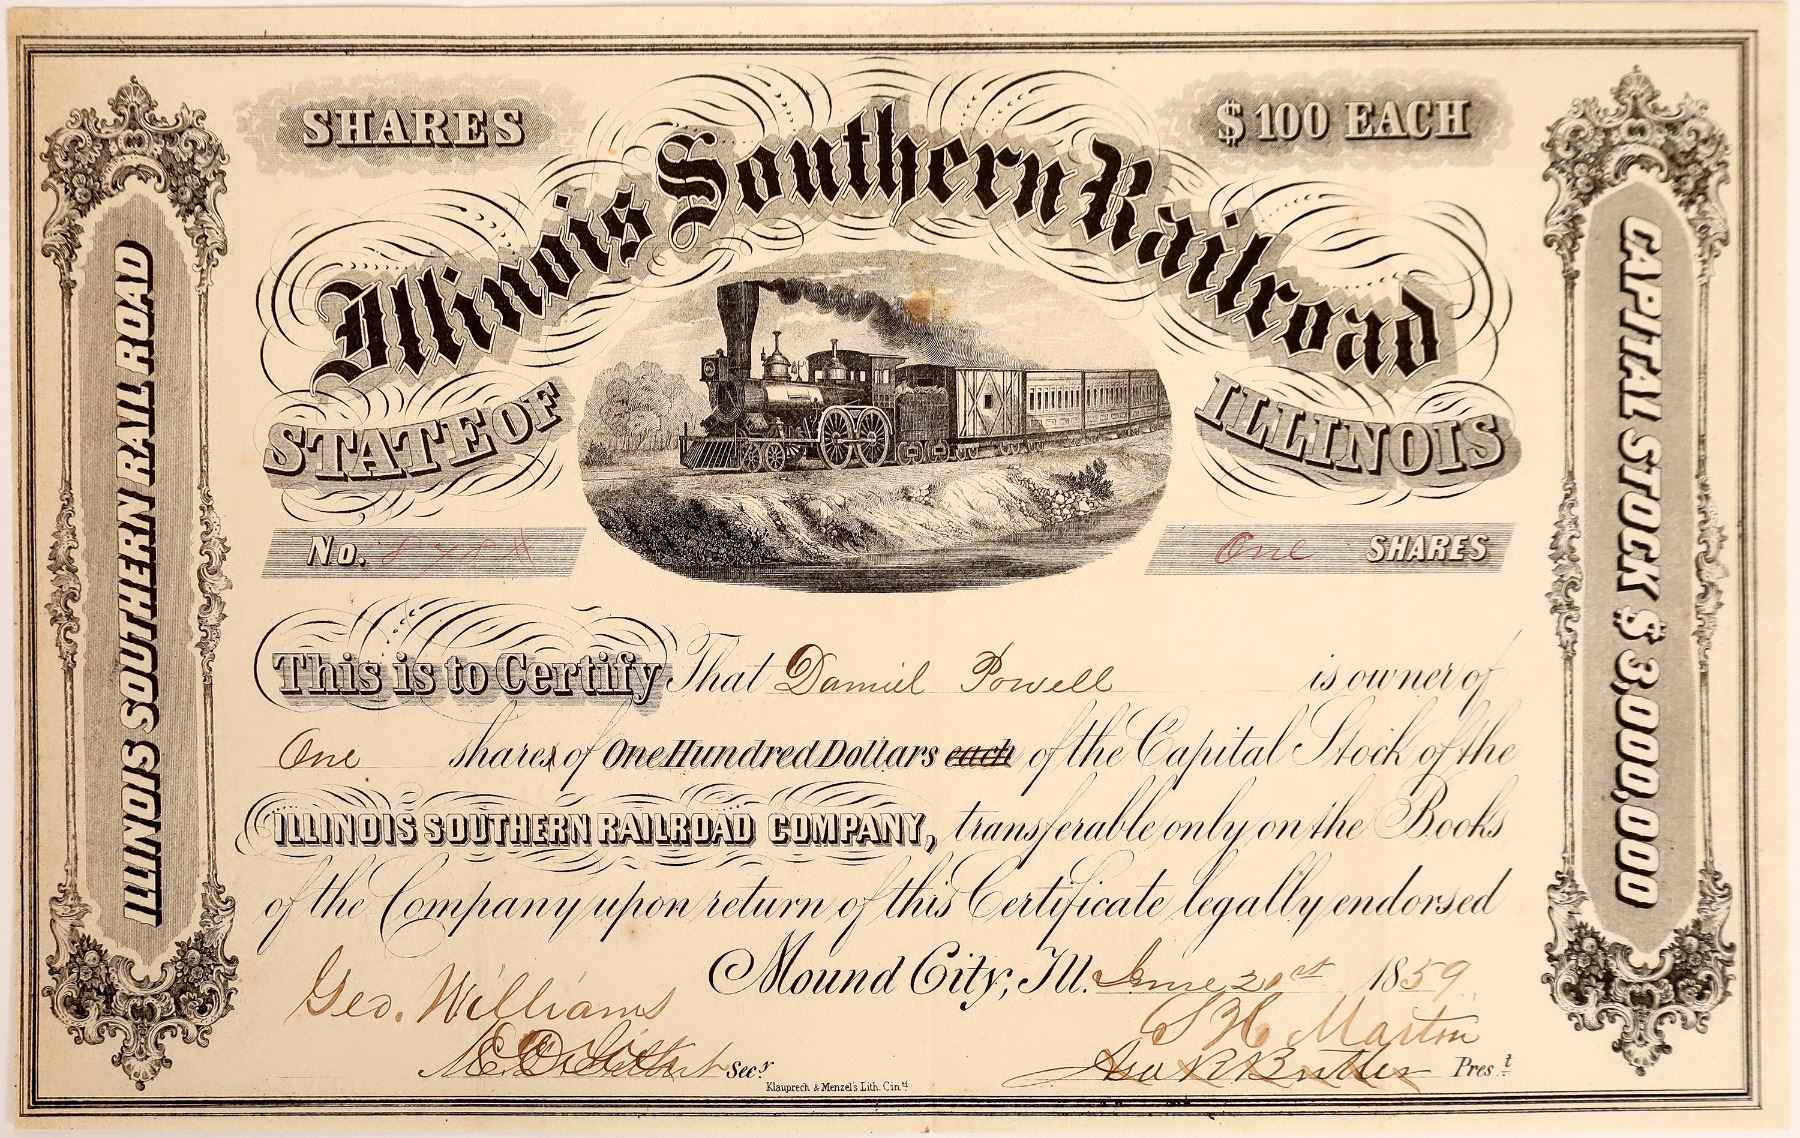 SHARES
$100 EACH
Illinois Southern Railroad
STATE OF
ILLINOIS
ILLINOIS SOUTHERN RAIL ROAD
CAPITAL STOCK $3,000,000
No.
One SHARES
This is to Certify That Daniel Powell is owner of
One shares of One Hundred Dollars each of the Capital Stock of the
ILLINOIS SOUTHERN RAILROAD COMPANY, transferable only on the Books
of the Company upon return of this Certificate legally endorsed
Mound City, Ill. June 21st 1859
Geo. Williams
S H Martin
Secy
Asa R Butler Prest
Klauprech & Menzel's Lith. Cin tí